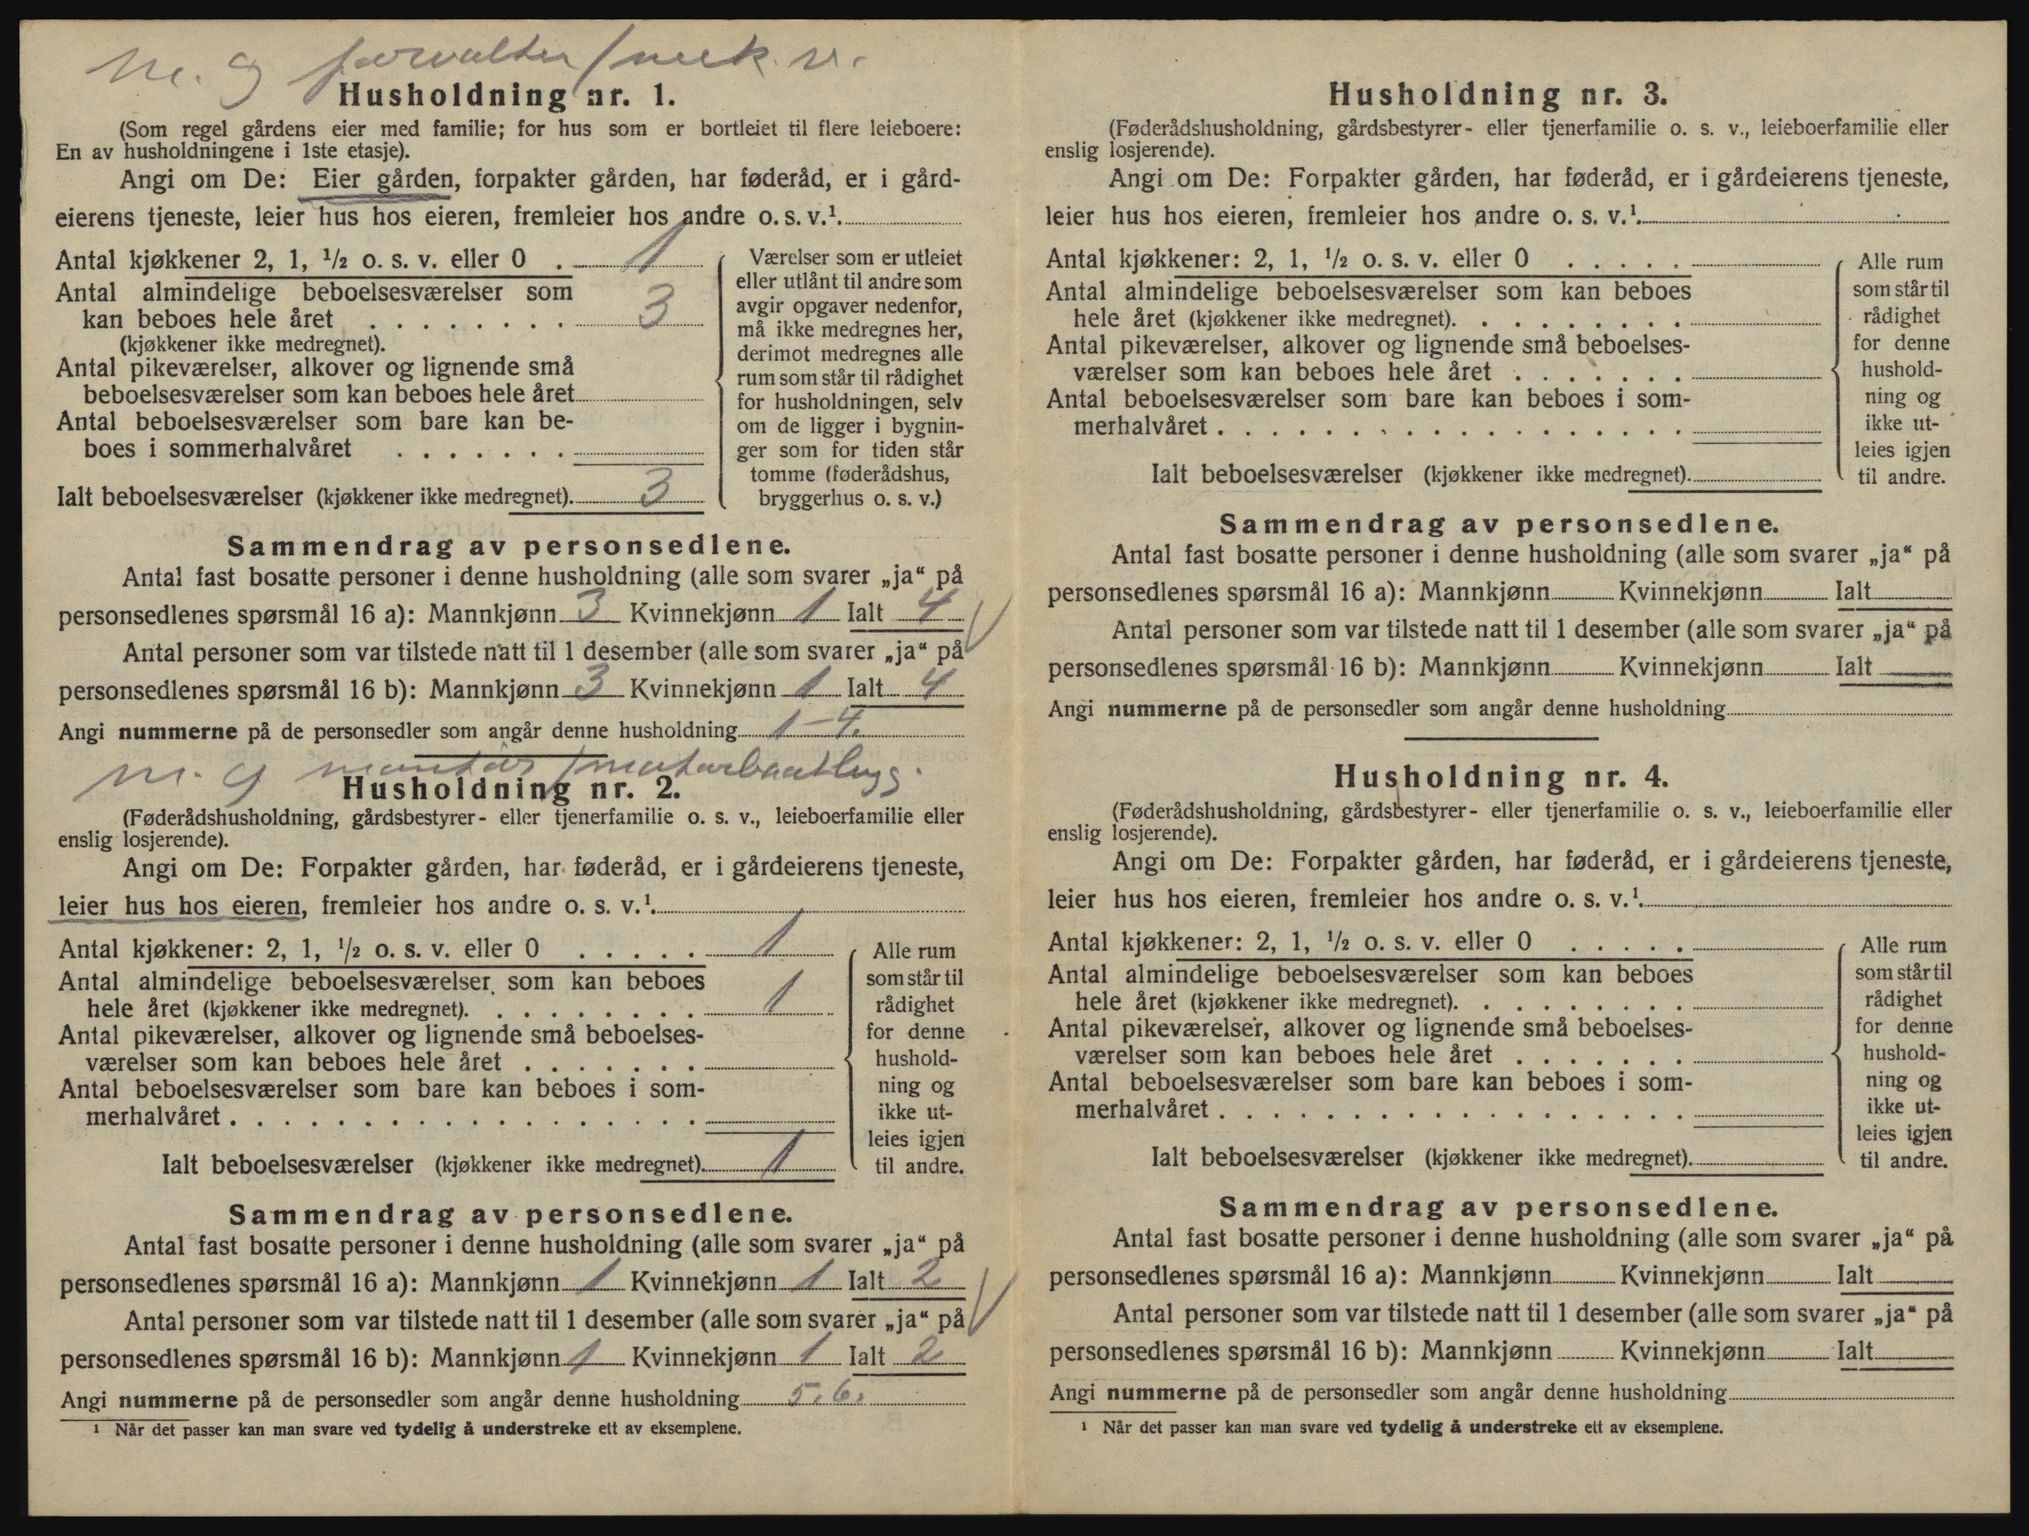 m. g forvalter / mek. v.
Husholdning nr. 1.
(Som regel gårdens eier med familie; for hus som er bortleiet til flere leieboere:
En av husholdningene i 1ste etasje).
Angi om De: Eier gården, forpakter gården, har føderåd, er i gård-
eierens tjeneste, leier hus hos eieren, fremleier hos andre o. s. v.¹.
Antal kjøkkener 2, 1, ½ o. s. v. eller 0 . 1
Antal almindelige beboelsesværelser som
kan beboes hele året . . . . . . . . 3
(kjøkkener ikke medregnet).
Antal pikeværelser, alkover og lignende små
beboelsesværelser som kan beboes hele året
Antal beboelsesværelser som bare kan be-
boes i sommerhalvåret . . . . . . .
Ialt beboelsesværelser (kjøkkener ikke medregnet). 3
Værelser som er utleiet
eller utlånt til andre som
avgir opgaver nedenfor,
må ikke medregnes her,
derimot medregnes alle
rum som står til rådighet
for husholdningen, selv
om de ligger i bygnin-
ger som for tiden står
tomme (føderådshus,
bryggerhus o. s. v.)
Sammendrag av personsedlene.
Antal fast bosatte personer i denne husholdning (alle som svarer „ja“ på
personsedlenes spørsmål 16 a): Mannkjønn 3 Kvinnekjønn 1 Ialt 4
Antal personer som var tilstede natt til 1 desember (alle som svarer „ja“ på
personsedlenes spørsmål 16 b): Mannkjønn 3 Kvinnekjønn 1 Ialt 4
Angi nummerne på de personsedler som angår denne husholdning 1-4.
m. g montør / motorbaatbygg.
Husholdning nr. 2.
(Føderådshusholdning, gårdsbestyrer- eller tjenerfamilie o. s. v., leieboerfamilie eller
enslig losjerende).
Angi om De: Forpakter gården, har føderåd, er i gårdeierens tjeneste,
leier hus hos eieren, fremleier hos andre o. s. v.¹.
Antal kjøkkener: 2, 1, ½ o. s. v. eller 0 . . . . . 1
Antal almindelige beboelsesværelser som kan beboes
hele året (kjøkkener ikke medregnet). . . . . . . . . 1
Antal pikeværelser, alkover og lignende små beboelses-
værelser som kan beboes hele året . . . . . . .
Antal beboelsesværelser som bare kan beboes i som-
merhalvåret . . . . . . . . . . . . . . . . . .
Ialt beboelsesværelser (kjøkkener ikke medregnet). 1
Alle rum
som står til
rådighet
for denne
hushold-
ning og
ikke ut-
leies igjen
til andre.
Sammendrag av personsedlene.
Antal fast bosatte personer i denne husholdning (alle som svarer „ja“ på
personsedlenes spørsmål 16 a): Mannkjønn 1 Kvinnekjønn 1 Ialt 2
Antal personer som var tilstede natt til 1 desember (alle som svarer „ja“ på
personsedlenes spørsmål 16 b): Mannkjønn 1 Kvinnekjønn 1 Ialt 2
Angi nummerne på de personsedler som angår denne husholdning 5.6.
¹ Når det passer kan man svare ved tydelig å understreke ett av eksemplene.
Husholdning nr. 3.
(Føderådshusholdning, gårdsbestyrer- eller tjenerfamilie o. s. v., leieboerfamilie eller
enslig losjerende).
Angi om De: Forpakter gården, har føderåd, er i gårdeierens tjeneste,
leier hus hos eieren, fremleier hos andre o. s. v.¹.
Antal kjøkkener: 2, 1, ½ o. s. v. eller 0 . . . . .
Antal almindelige beboelsesværelser som kan beboes
hele året (kjøkkener ikke medregnet). . . . . . . . .
Antal pikeværelser, alkover og lignende små beboelses-
værelser som kan beboes hele året . . . . . . .
Antal beboelsesværelser som bare kan beboes i som-
merhalvåret . . . . . . . . . . . . . . . . . .
Ialt beboelsesværelser (kjøkkener ikke medregnet).
Alle rum
som står til
rådighet
for denne
hushold-
ning og
ikke ut-
leies igjen
til andre.
Sammendrag av personsedlene.
Antal fast bosatte personer i denne husholdning (alle som svarer „ja“ på
personsedlenes spørsmål 16 a): Mannkjønn Kvinnekjønn Ialt
Antal personer som var tilstede natt til 1 desember (alle som svarer „ja“ på
personsedlenes spørsmål 16 b): Mannkjønn Kvinnekjønn Ialt
Angi nummerne på de personsedler som angår denne husholdning
Husholdning nr. 4.
(Føderådshusholdning, gårdsbestyrer- eller tjenerfamilie o. s. v., leieboerfamilie eller
enslig losjerende).
Angi om De: Forpakter gården, har føderåd, er i gårdeierens tjeneste,
leier hus hos eieren, fremleier hos andre o. s. v.¹.
Antal kjøkkener: 2, 1, ½ o. s. v. eller 0 . . . . .
Antal almindelige beboelsesværelser som kan beboes
hele året (kjøkkener ikke medregnet). . . . . . . . .
Antal pikeværelser, alkover og lignende små beboelses-
værelser som kan beboes hele året . . . . . . .
Antal beboelsesværelser som bare kan beboes i som-
merhalvåret . . . . . . . . . . . . . . . . . .
Ialt beboelsesværelser (kjøkkener ikke medregnet).
Alle rum
som står til
rådighet
for denne
hushold-
ning og
ikke ut-
leies igjen
til andre.
Sammendrag av personsedlene.
Antal fast bosatte personer i denne husholdning (alle som svarer „ja“ på
personsedlenes spørsmål 16 a): Mannkjønn Kvinnekjønn Ialt
Antal personer som var tilstede natt til 1 desember (alle som svarer „ja“ på
personsedlenes spørsmål 16 b): Mannkjønn Kvinnekjønn Ialt
Angi nummerne på de personsedler som angår denne husholdning
¹ Når det passer kan man svare ved tydelig å understreke ett av eksemplene.